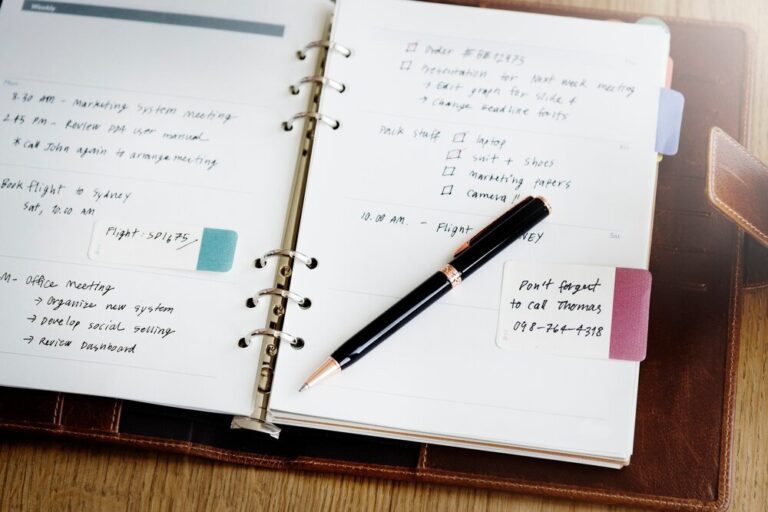 Weekly
Mon
8.30 AM - Marketing System meeting
2.45 PM - Review user manual
* Call John again to arrange meeting
Book flight to Sydney
Sat, 10.00 AM
Flight: SD1675
M - Office meeting
→ Organize new system
→ Develop social selling
→ Review Dashboard
Order
Presentation for Next week meeting
→ Edit graph for slide 4
→ Change headline fonts
Pack stuff
laptop
suit + shoes
Marketing papers
Camera!!
Sat
10.00 AM. - Flight NEY
Don't forget
to call Thomas
098-764-4318